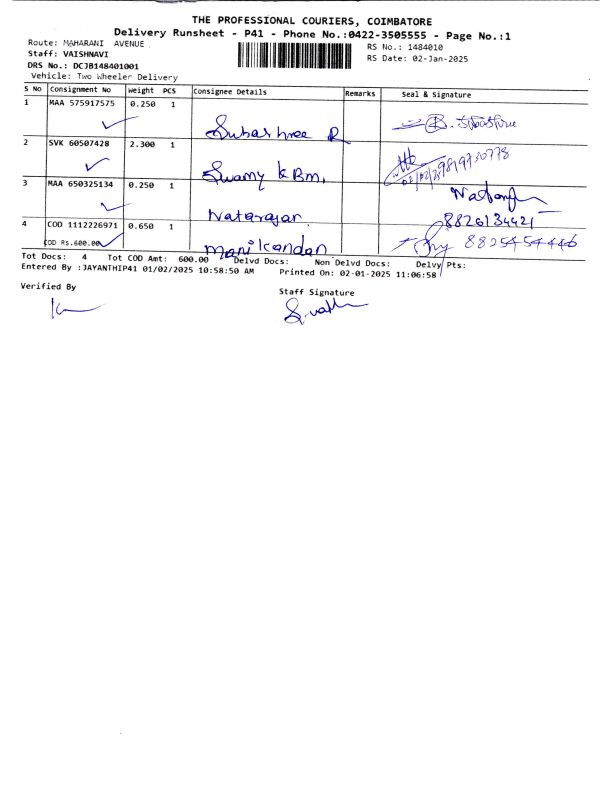 THE PROFESSIONAL COURIERS, COIMBATORE
Delivery Runsheet - P41 - Phone No.:0422-3505555 - Page No.:1
Route: MAHARANI AVENUE RS No.: 1484010
Staff: VAISHNAVI RS Date: 02-Jan-2025
DRS No.: DCJB148401001
Vehicle: Two Wheeler Delivery
S No Consignment No Weight PCS Consignee Details Remarks Seal & Signature
1 MAA 575917575 0.250 1
Subashree R
2 SVK 60507428 2.300 1
Swamy K Bm.
3 MAA 650325134 0.250 1
Natarajan 8826134421
4 COD 1112226971 0.650 1
COD Rs.600.00 Manikandan 8825454446
Tot Docs: 4 Tot COD Amt: 600.00 Delvd Docs: Non Delvd Docs: Delvy Pts:
Entered By :JAYANTHIP41 01/02/2025 10:58:50 AM Printed On: 02-01-2025 11:06:58
Verified By Staff Signature